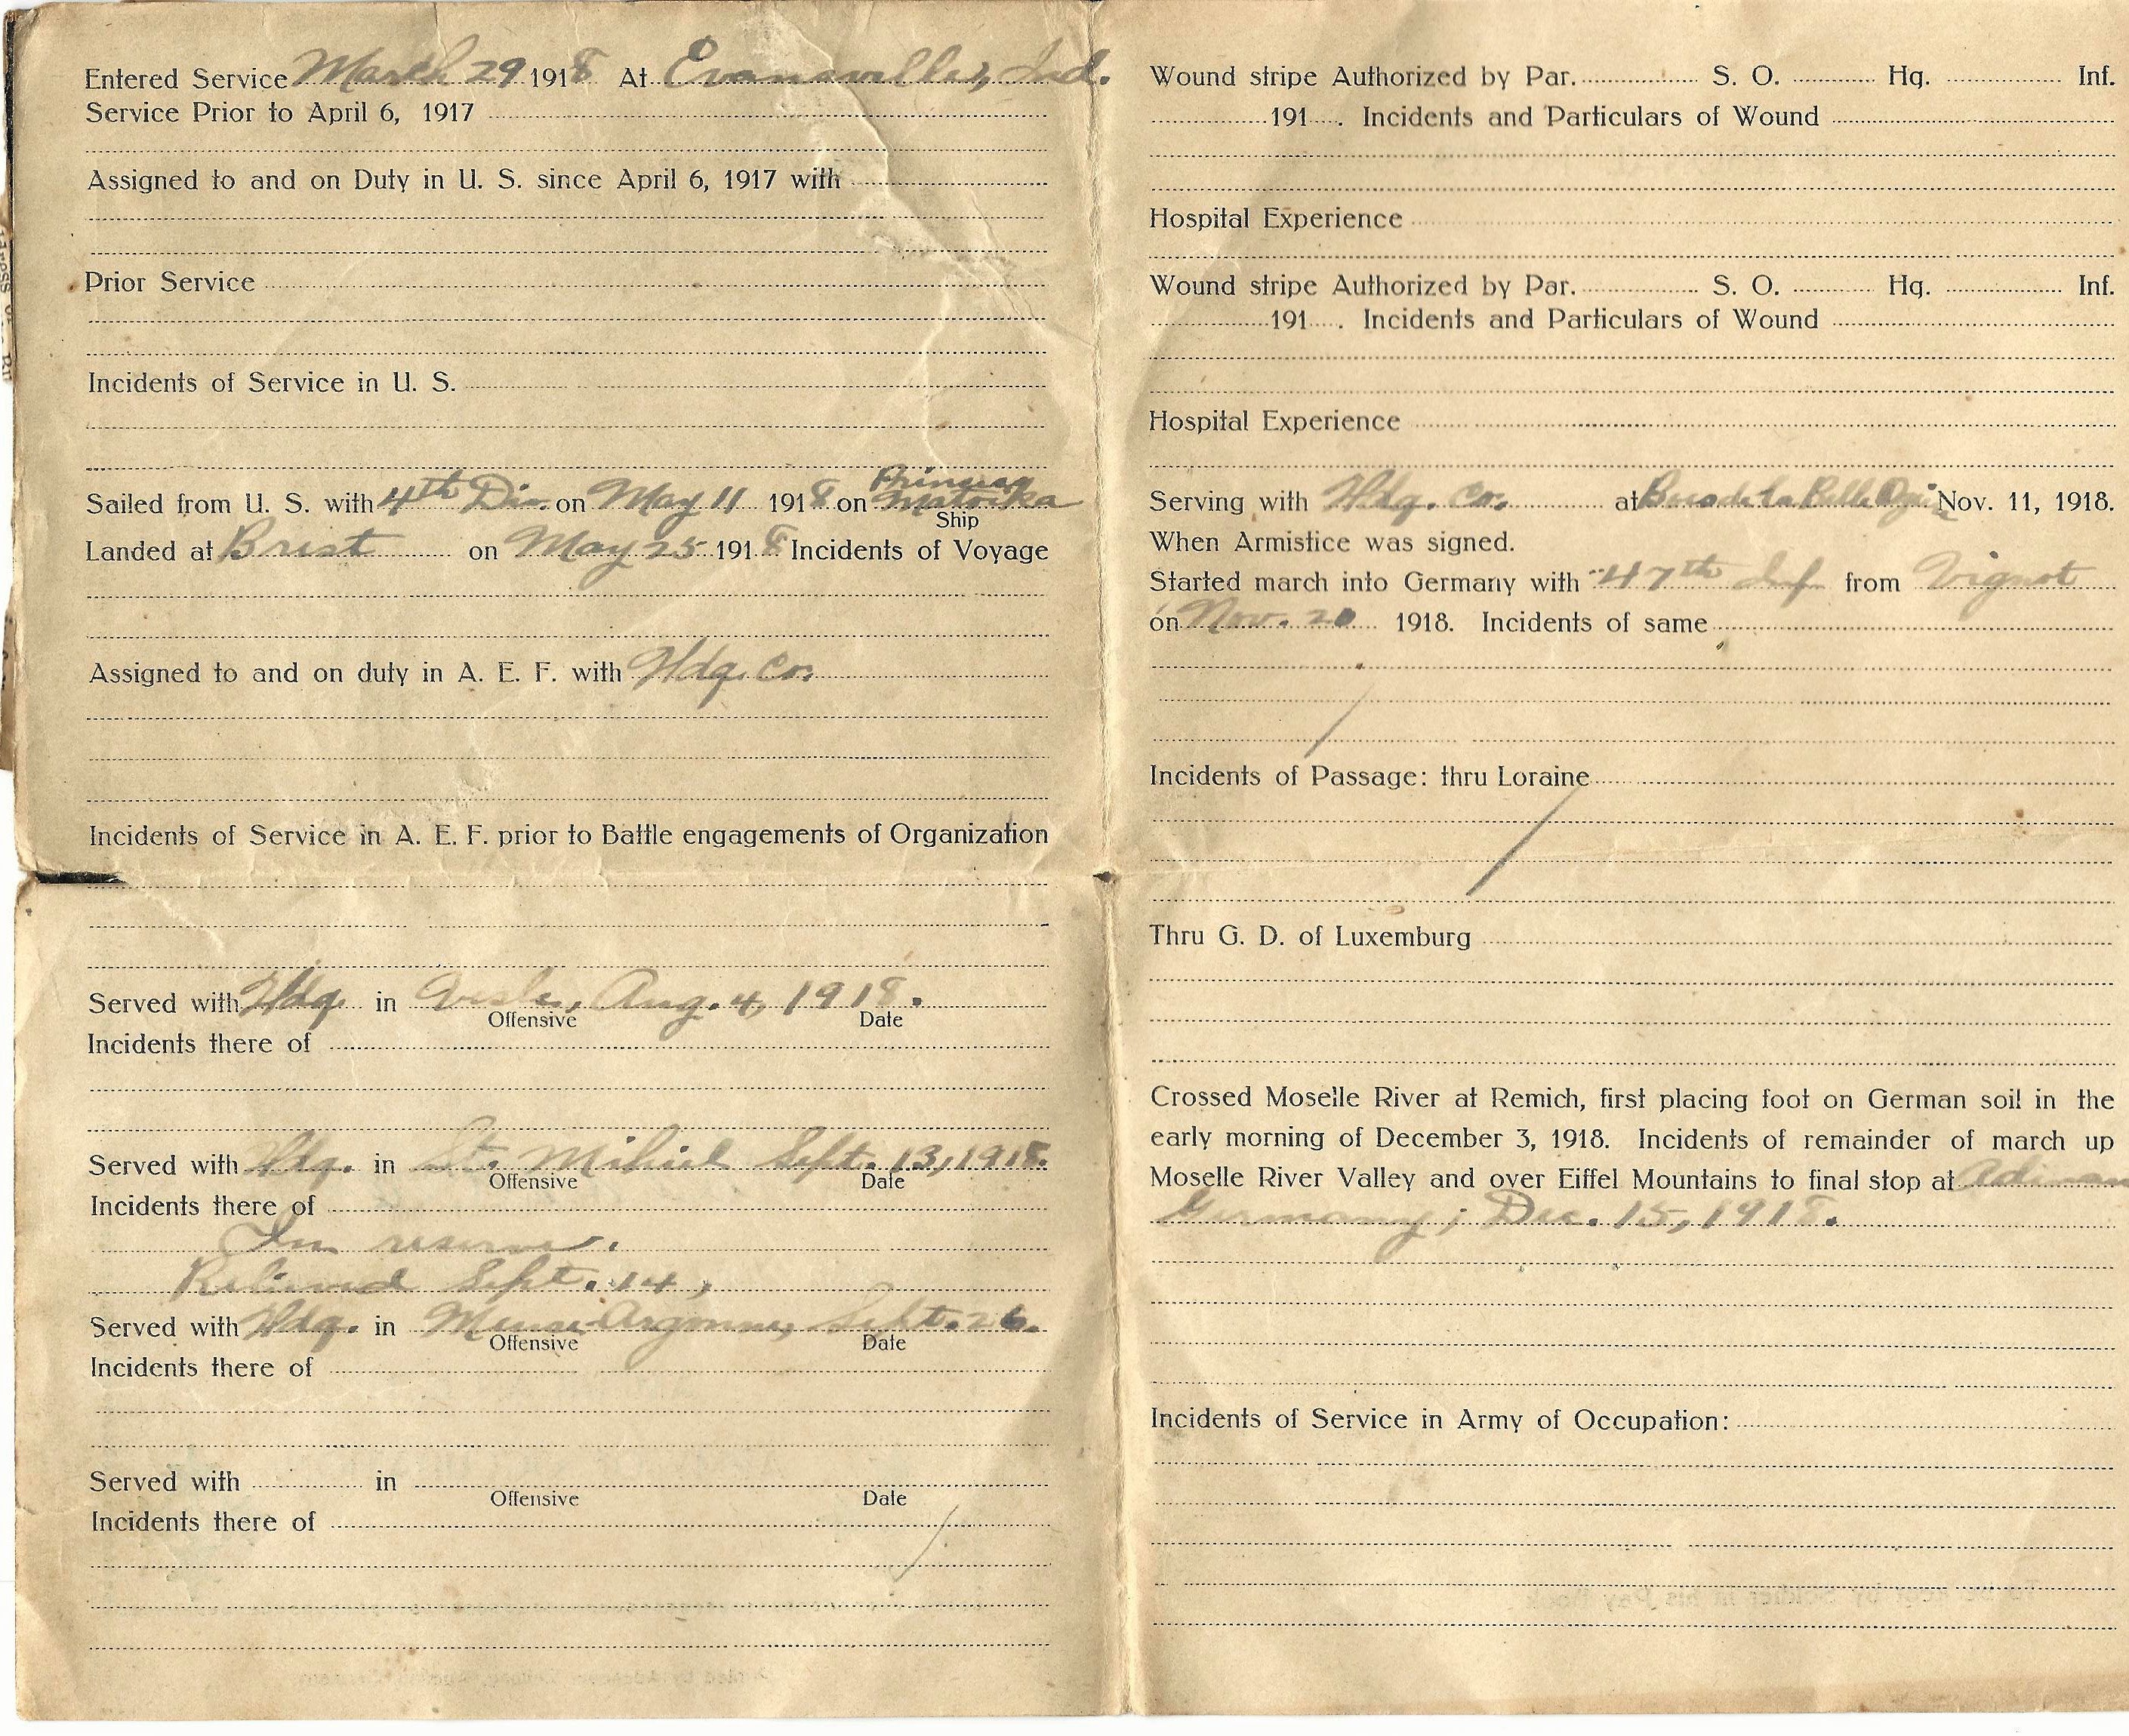 Entered Service March 29 1918 At Evansville, Ind.
Service Prior to April 6, 1917
Assigned to and on Duty in U. S. since April 6, 1917 with
Prior Service
Incidents of Service in U. S.
Princess
Sailed from U. S. with 4th Div. on May 11 1918 on Matoika
Ship
Landed at Brest on May 25 1918 Incidents of Voyage
Assigned to and on duty in A. E. F. with Hdq. Co.
Incidents of Service in A. E. F. prior to Battle engagements of Organization
Served with Hdq. in Aug. 4, 1918.
Offensive Date
Incidents there of
Served with Hdq. in St. Mihiel Sept. 13, 1918.
Offensive Date
Incidents there of
In reserve.
Relieved Sept. 14,
Served with Hdq. in Meuse-Argonne, Sept. 26.
Offensive Date
Incidents there of
Served with in
Offensive Date
Incidents there of
Wound stripe Authorized by Par. S. O. Hq. Inf.
191 . Incidents and Particulars of Wound
Hospital Experience
Wound stripe Authorized by Par. S. O. Hq. Inf.
191 . Incidents and Particulars of Wound
Hospital Experience
Serving with Hdq. Co. at Nov. 11, 1918.
When Armistice was signed.
Started march into Germany with 47th Inf from Vignot
on Nov. 20 1918. Incidents of same
Incidents of Passage: thru Loraine
Thru G. D. of Luxemburg
Crossed Moselle River at Remich, first placing foot on German soil in the
early morning of December 3, 1918. Incidents of remainder of march up
Moselle River Valley and over Eiffel Mountains to final stop at
Germany; Dec. 15, 1918.
Incidents of Service in Army of Occupation: